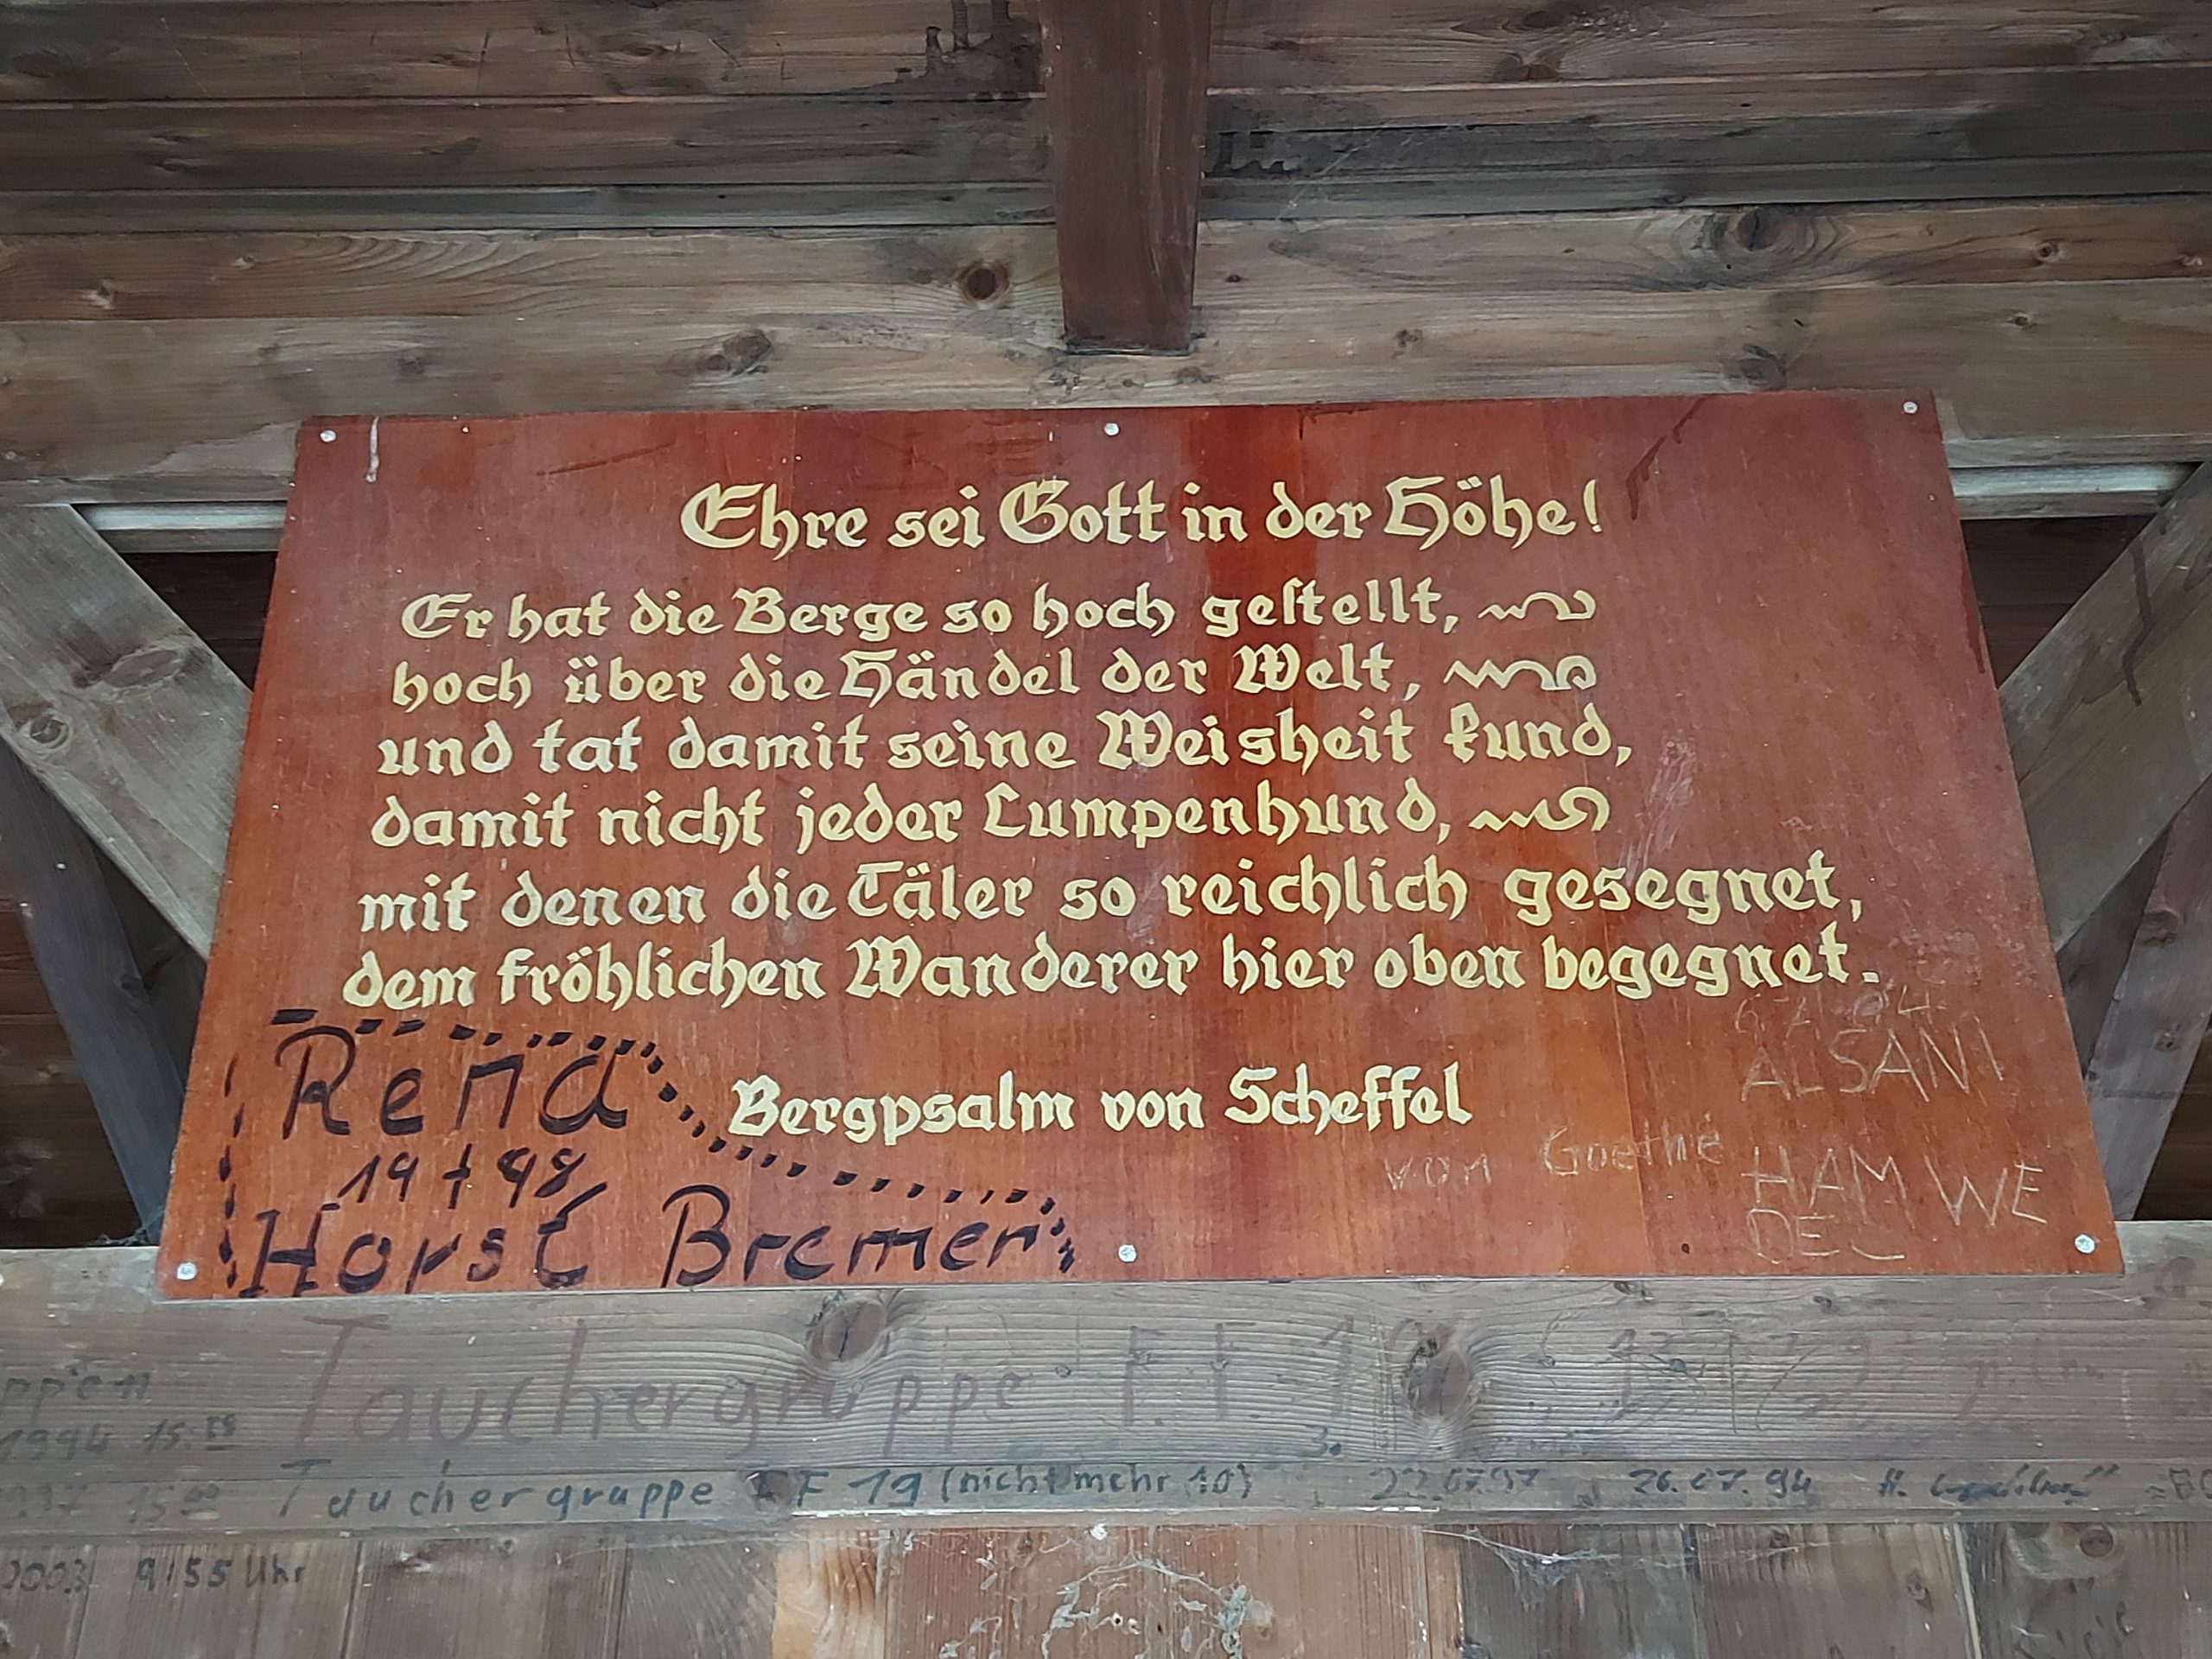 Ehre sei Gott in der Höhe!
Er hat die Berge so hoch geſtellt,
hoch über die Händel der Welt,
und tat damit seine Weisheit kund,
damit nicht jeder Lumpenhund,
mit denen die Täler so reichlich gesegnet,
dem fröhlichen Wanderer hier oben begegnet.
Bergpsalm von Scheffel
von Goethe
Rena
19 + 98
Horst Bremer
ALSANI
HAM WE
DEL
Tauchergruppe F.F. 19
1994 15:
Tauchergruppe FF 19 (nicht mehr 10) 22.07.97 26.07.94 H.
2003 9:55 Uhr